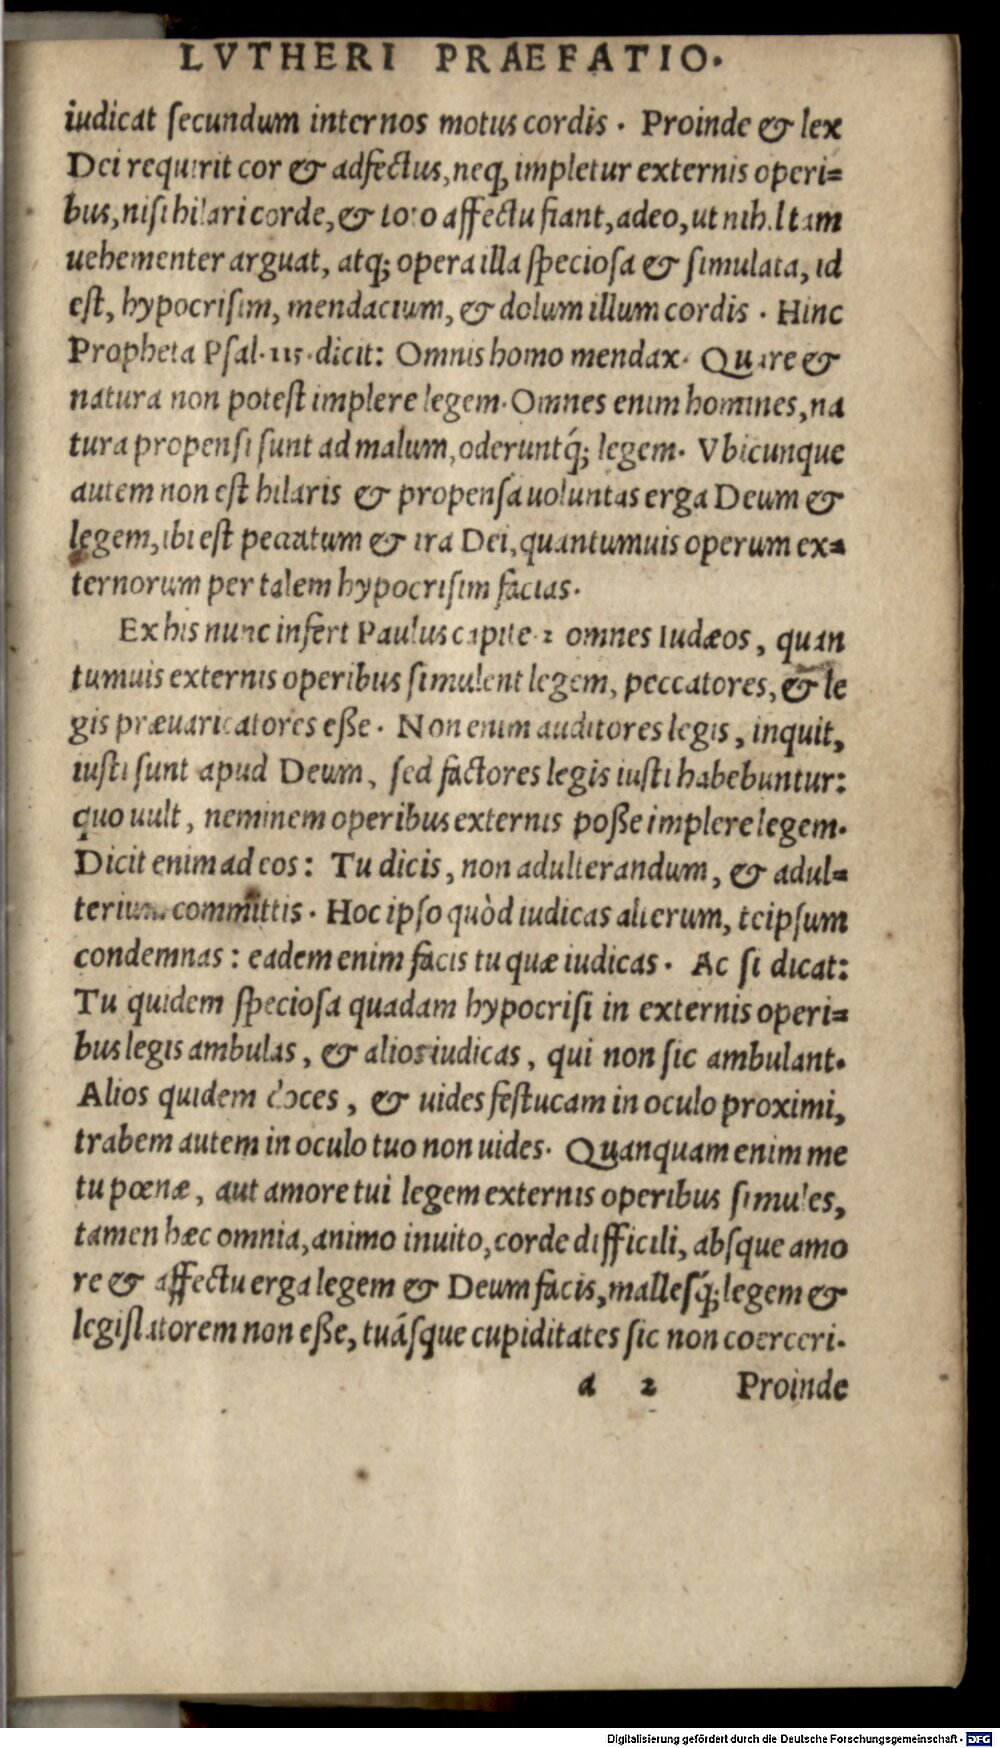 LVTHERI PRAEFATIO.
iudicat secundum internos motus cordis. Proinde & lex
Dei requirit cor & adfectus, neq; impletur externis operi=
bus, nisi hilari corde, & toto affectu fiant, adeo, ut nihil tam
uehementer arguat, atq; opera illa speciosa & simulata, id
est, hypocrisim, mendacium, & dolum illum cordis. Hinc
Propheta Psal. 115. dicit: Omnis homo mendax. Quare &
natura non potest implere legem. Omnes enim homines, na
tura propensi sunt ad malum, oderuntq́; legem. Vbicunque
autem non est hilaris & propensa uoluntas erga Deum &
legem, ibi est peccatum & ira Dei, quantumuis operum ex=
ternorum per talem hypocrisim facias.
Ex his nunc infert Paulus capite. 2 omnes Iudæos, quan
tumuis externis operibus simulent legem, peccatores, & le
gis præuaricatores eße. Non enim auditores legis, inquit,
iusti sunt apud Deum, sed factores legis iusti habebuntur:
quo uult, neminem operibus externis poße implere legem.
Dicit enim ad eos: Tu dicis, non adulterandum, & adul=
terium committis. Hoc ipso quòd iudicas alterum, teipsum
condemnas: eadem enim facis tu quæ iudicas. Ac si dicat:
Tu quidem speciosa quadam hypocrisi in externis operi=
bus legis ambulas, & alios iudicas, qui non sic ambulant.
Alios quidem doces, & uides festucam in oculo proximi,
trabem autem in oculo tuo non uides. Quanquam enim me
tu pœnæ, aut amore tui legem externis operibus simules,
tamen hæc omnia, animo inuito, corde difficili, absque amo
re & affectu erga legem & Deum facis, mallesq́; legem &
legislatorem non eße, tuásque cupiditates sic non coerceri.
a 2 Proinde
Digitalisierung gefördert durch die Deutsche Forschungsgemeinschaft - DFG